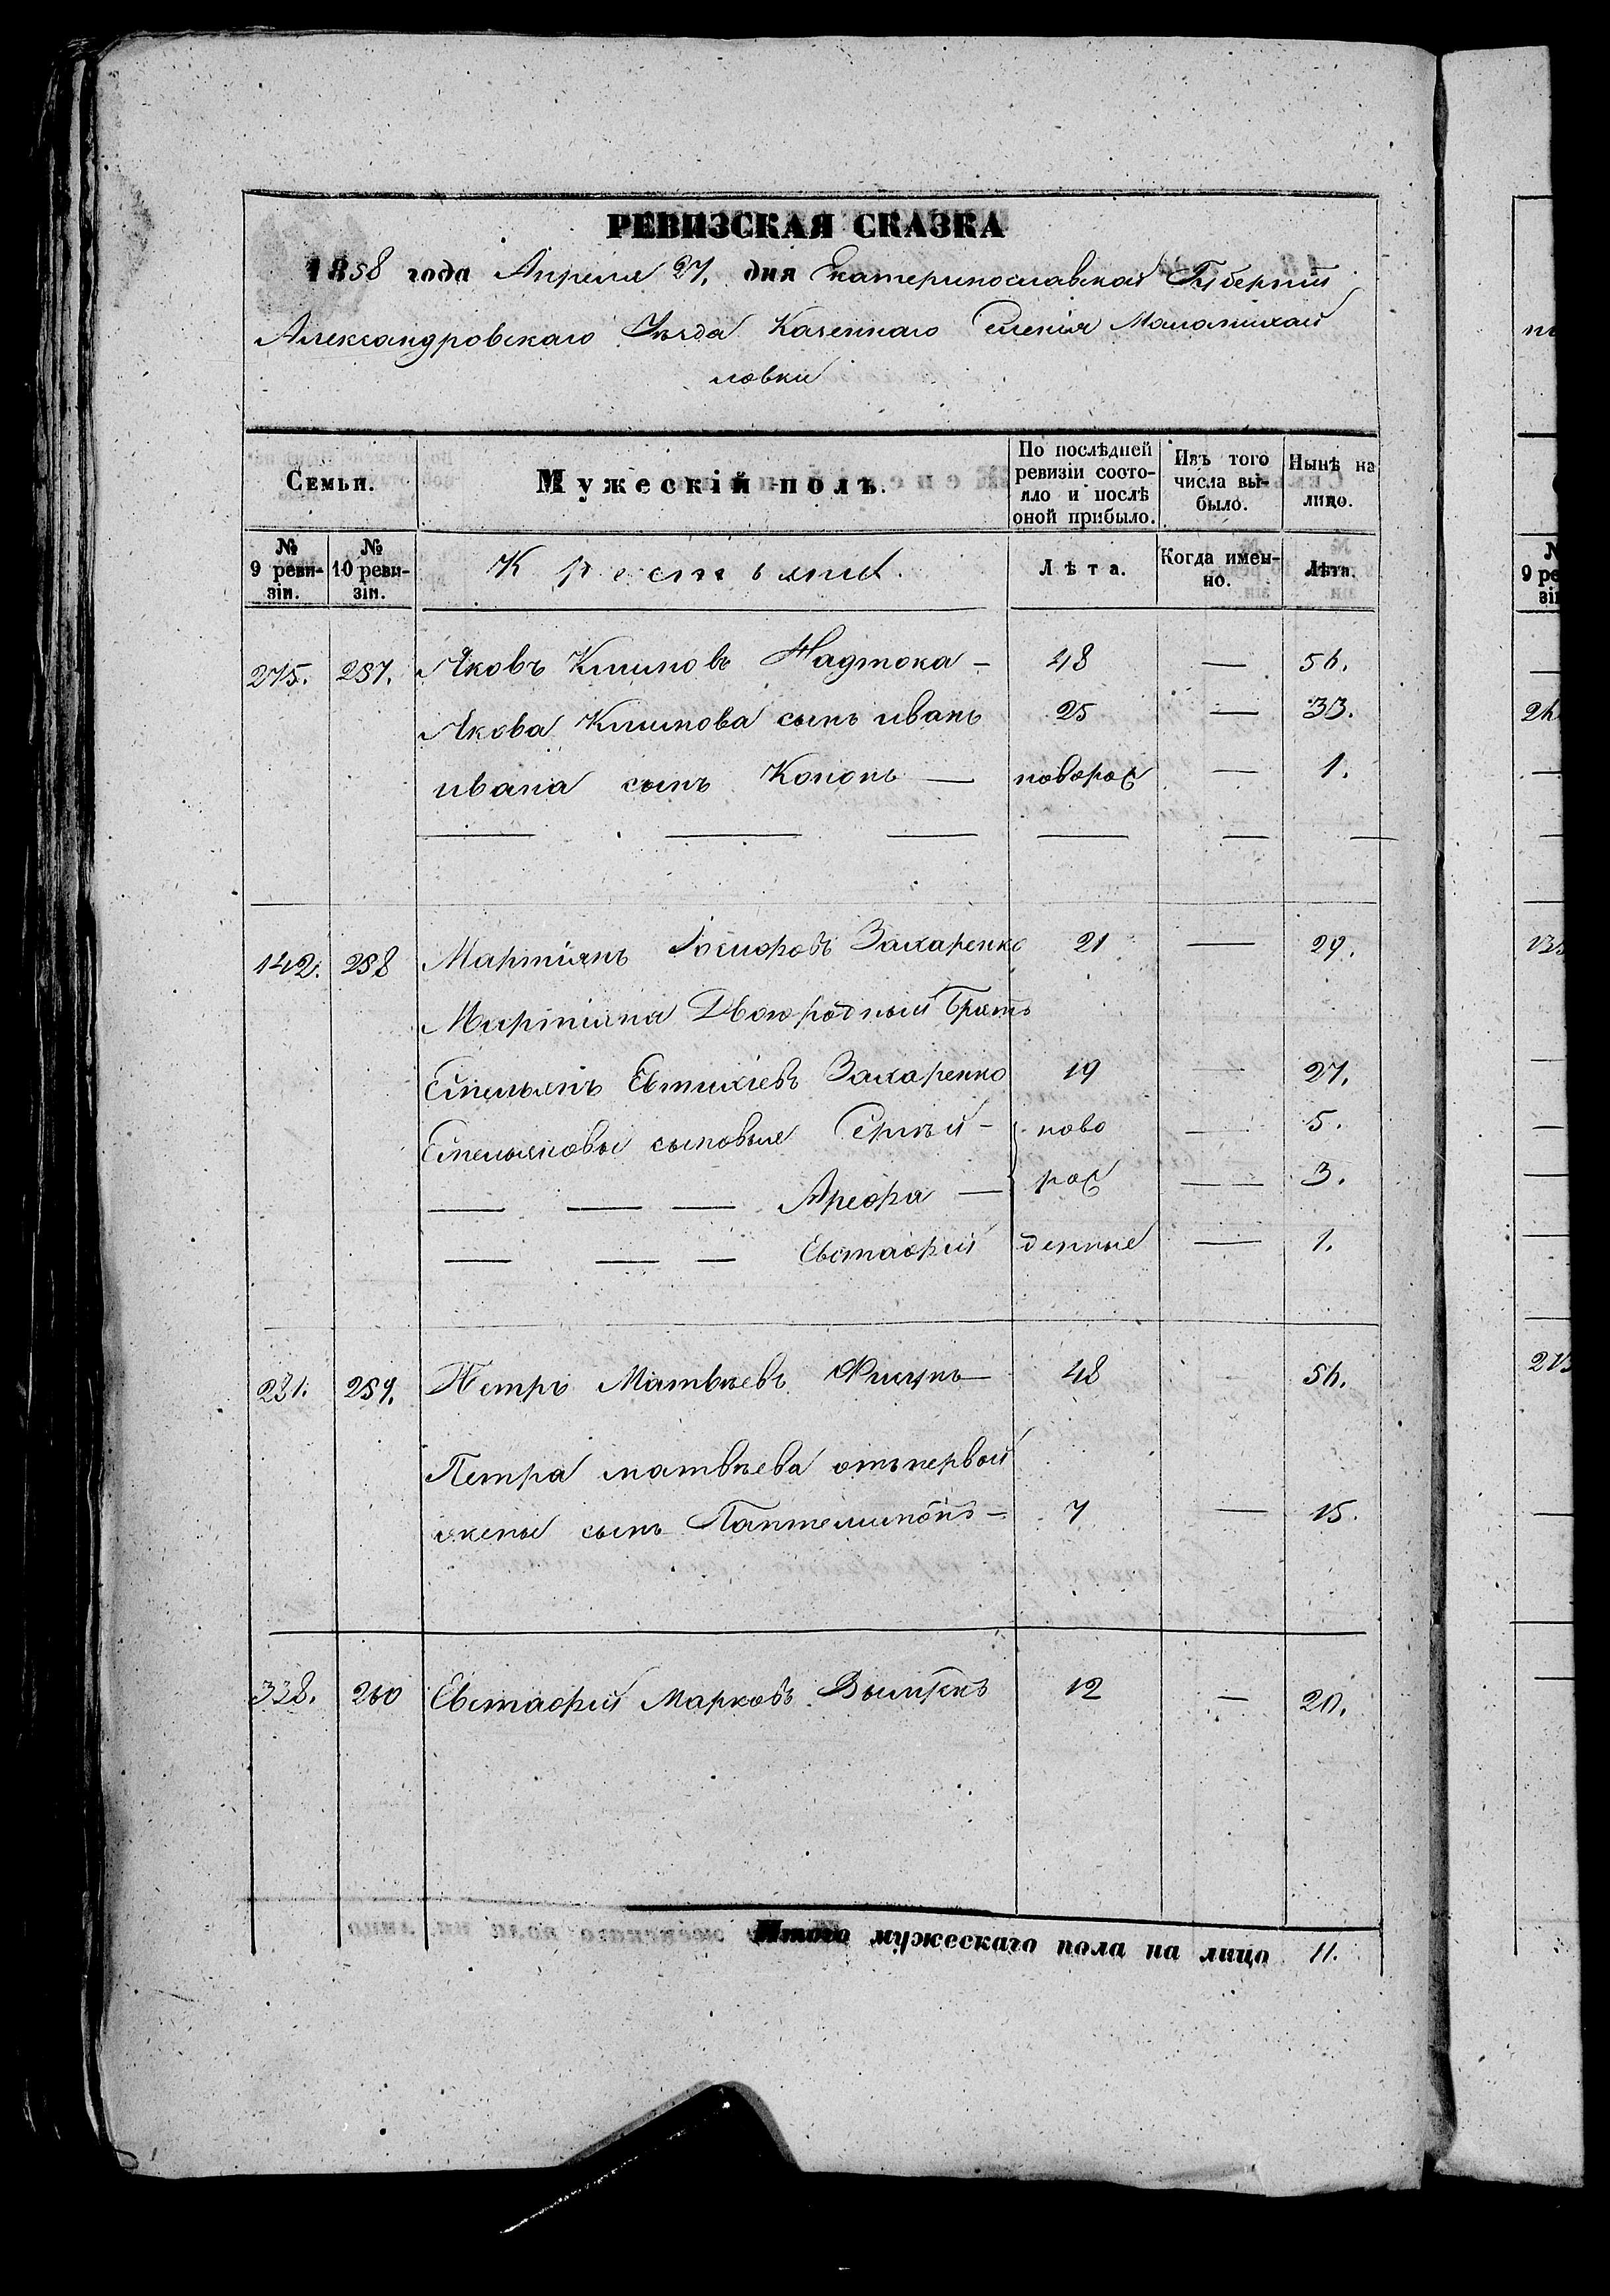 РЕВИЗСКАЯ СКАЗКА
1858 года Апреля 27. дня Екатеринославской Губерніи
Александровскаго Уѣзда Казеннаго Селенія Маломихай
ловки
Семьи. Мужескій полъ. По послѣдней ревизіи состояло и послѣ оной прибыло. Изъ того числа выбыло. Нынѣ на лицо.
№ 9 ревизіи. № 10 ревизіи. Крестьяне. Лѣта. Когда именно. Лѣта.
275. 257. Яковъ Климовъ Надтока — 48 — 56.
Якова Климова сынъ иванъ 25 — 33.
ивана сынъ Кононъ — новорож — 1.
142. 258 Мартіянъ Захаренко 21 — 29.
Мартіяна Двоюродный Братъ
Емельянъ Евтихіевъ Захаренко 19 — 27.
Емельяновы сыновья Сергѣй — ново — 5.
— — — Арефа — рож — 3.
— — — Евстафій денные — 1.
231. 259. Петръ Матвѣевъ 48 — 56.
Петра матвѣева отъ первой
жены сынъ Пантелимонъ — 7 — 15.
338. 260 Евстафій Марковъ 12 — 20.
Итого мужескаго пола на лицо 11.